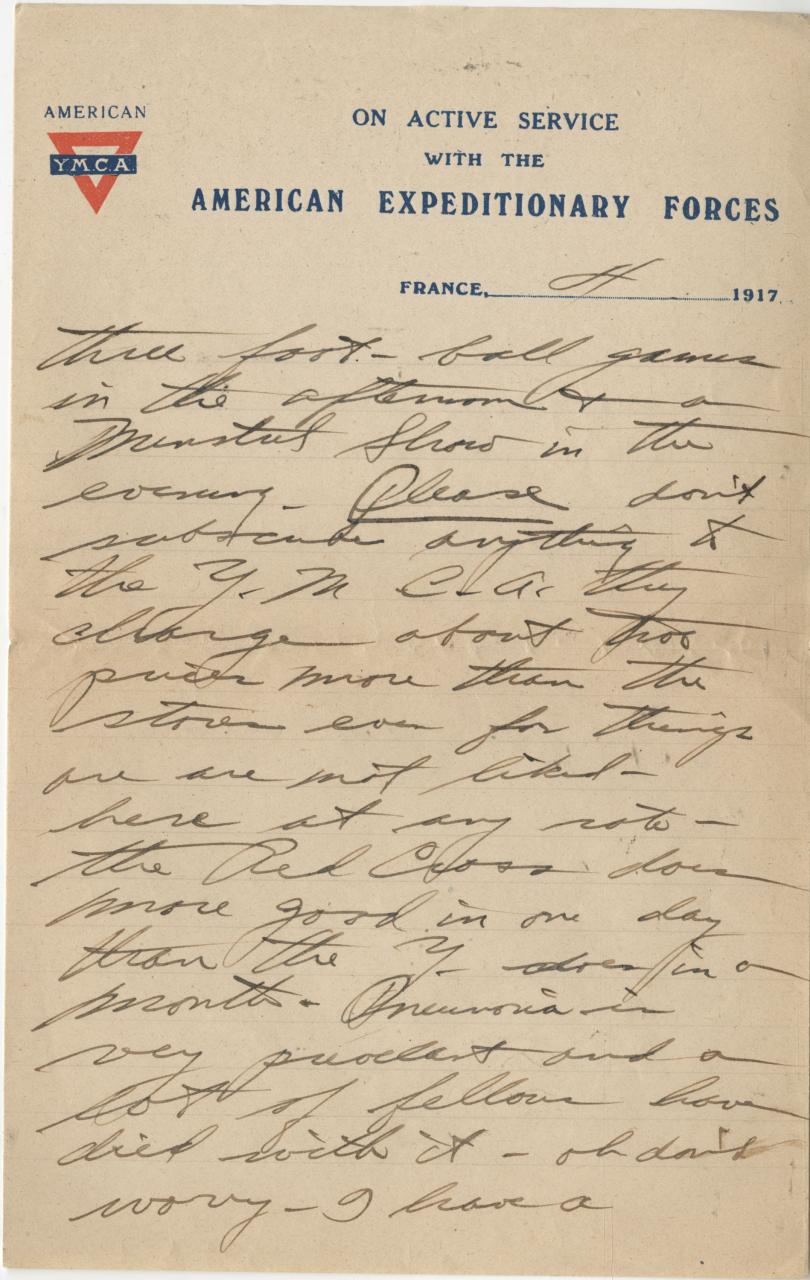 AMERICAN
Y.M.C.A.
ON ACTIVE SERVICE
WITH THE
AMERICAN EXPEDITIONARY FORCES
FRANCE, 1917
three foot-ball games
in the afternoon & a
Minstrel Show in the
evening - Please don't
subscribe anything to
the Y. M. C. A. they
charge about two
prices more than the
stores even for things
are not liked -
here at any rate -
the Red Cross does
more good in one day
than the Y. does in a
month - Pneumonia is
very prevelent and a
lot of fellows have
died with it - oh don't
worry - I have a